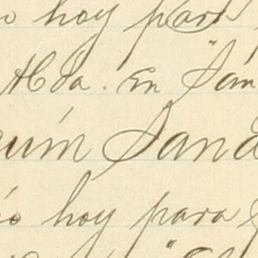 hoy para
Hda. En "San
uím Sand
ó hoy para